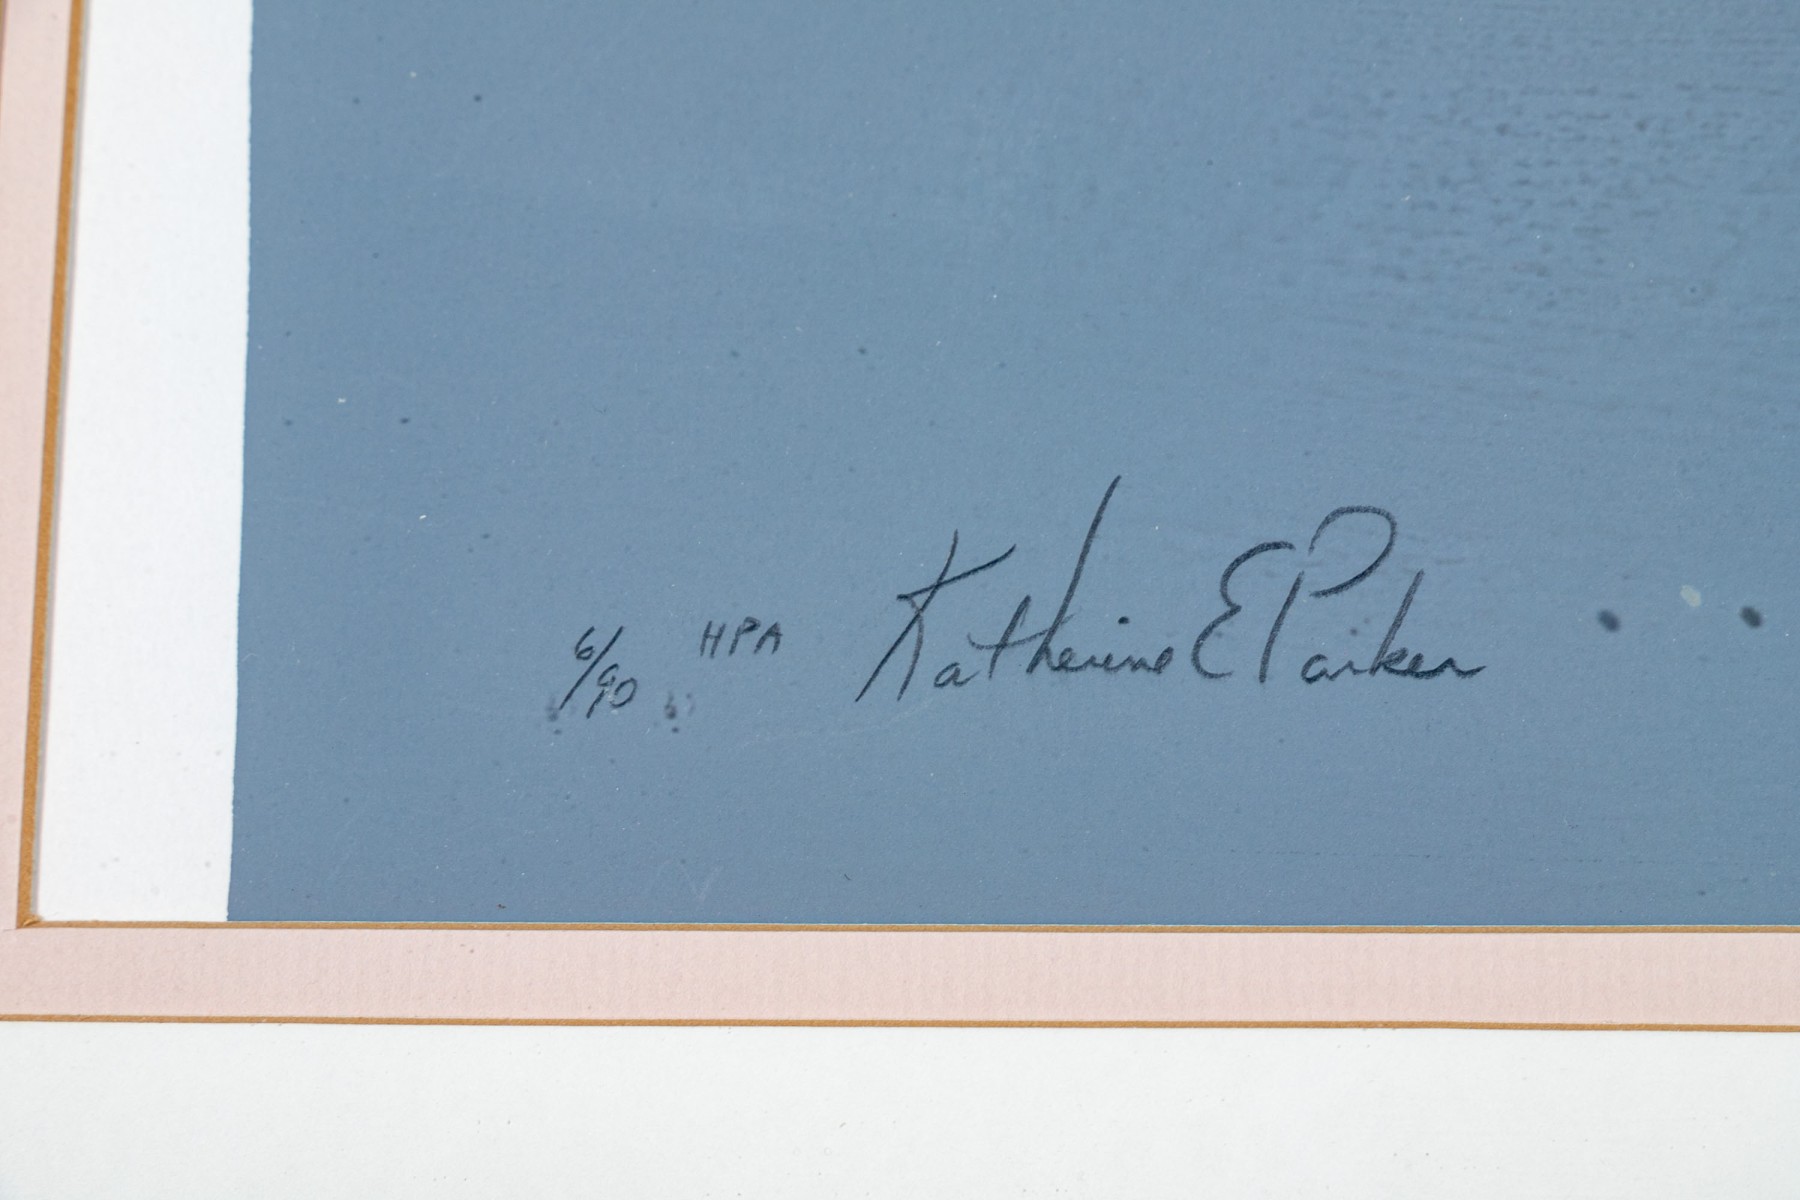 6/90 HPA Katherine E Parker